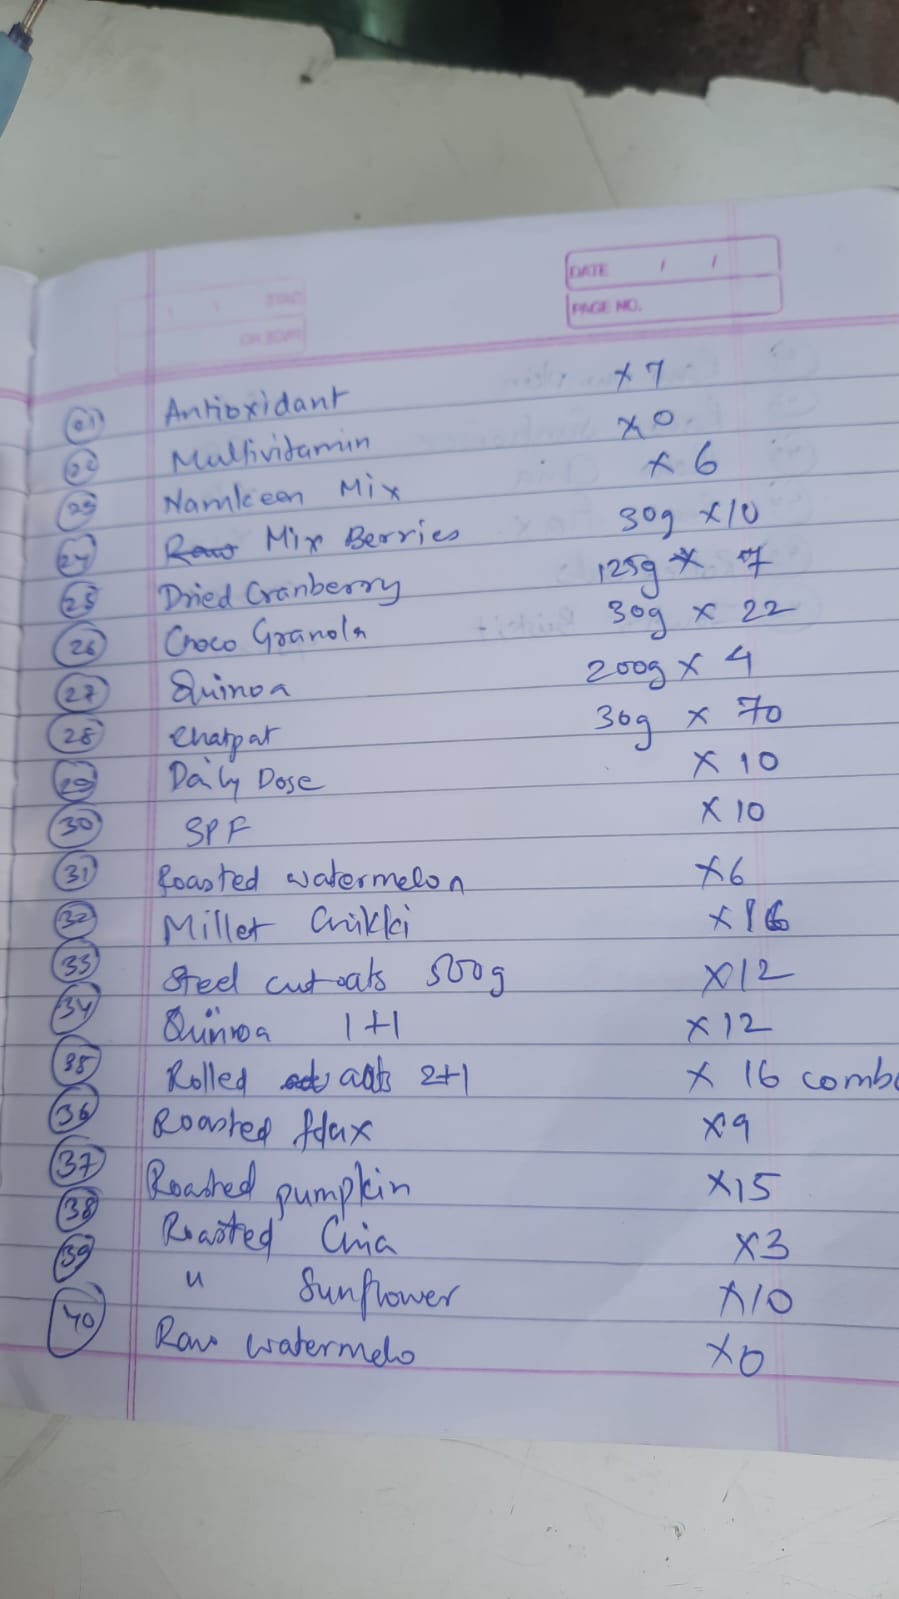 DATE / /
PAGE NO.
21 Antioxidant x 7
22 Multivitamin x 0
23 Namkeen Mix x 6
24 Mix Berries 30g x 10
25 Dried Cranberry 125g x 7
26 Choco Granola 30g x 22
27 Quinoa 200g x 4
28 Chatpat 30g x 70
29 Daily Dose x 10
30 SPF x 10
31 Roasted watermelon x 6
32 Millet Chikki x 16
33 Steel cut oats 500g x 12
34 Quinoa 1+1 x 12
35 Rolled oats 2+1 x 16 comb
36 Roasted flax x 9
37 Roasted pumpkin x 15
38 Roasted Chia x 3
39 " Sunflower x 10
40 Raw watermelo x 0